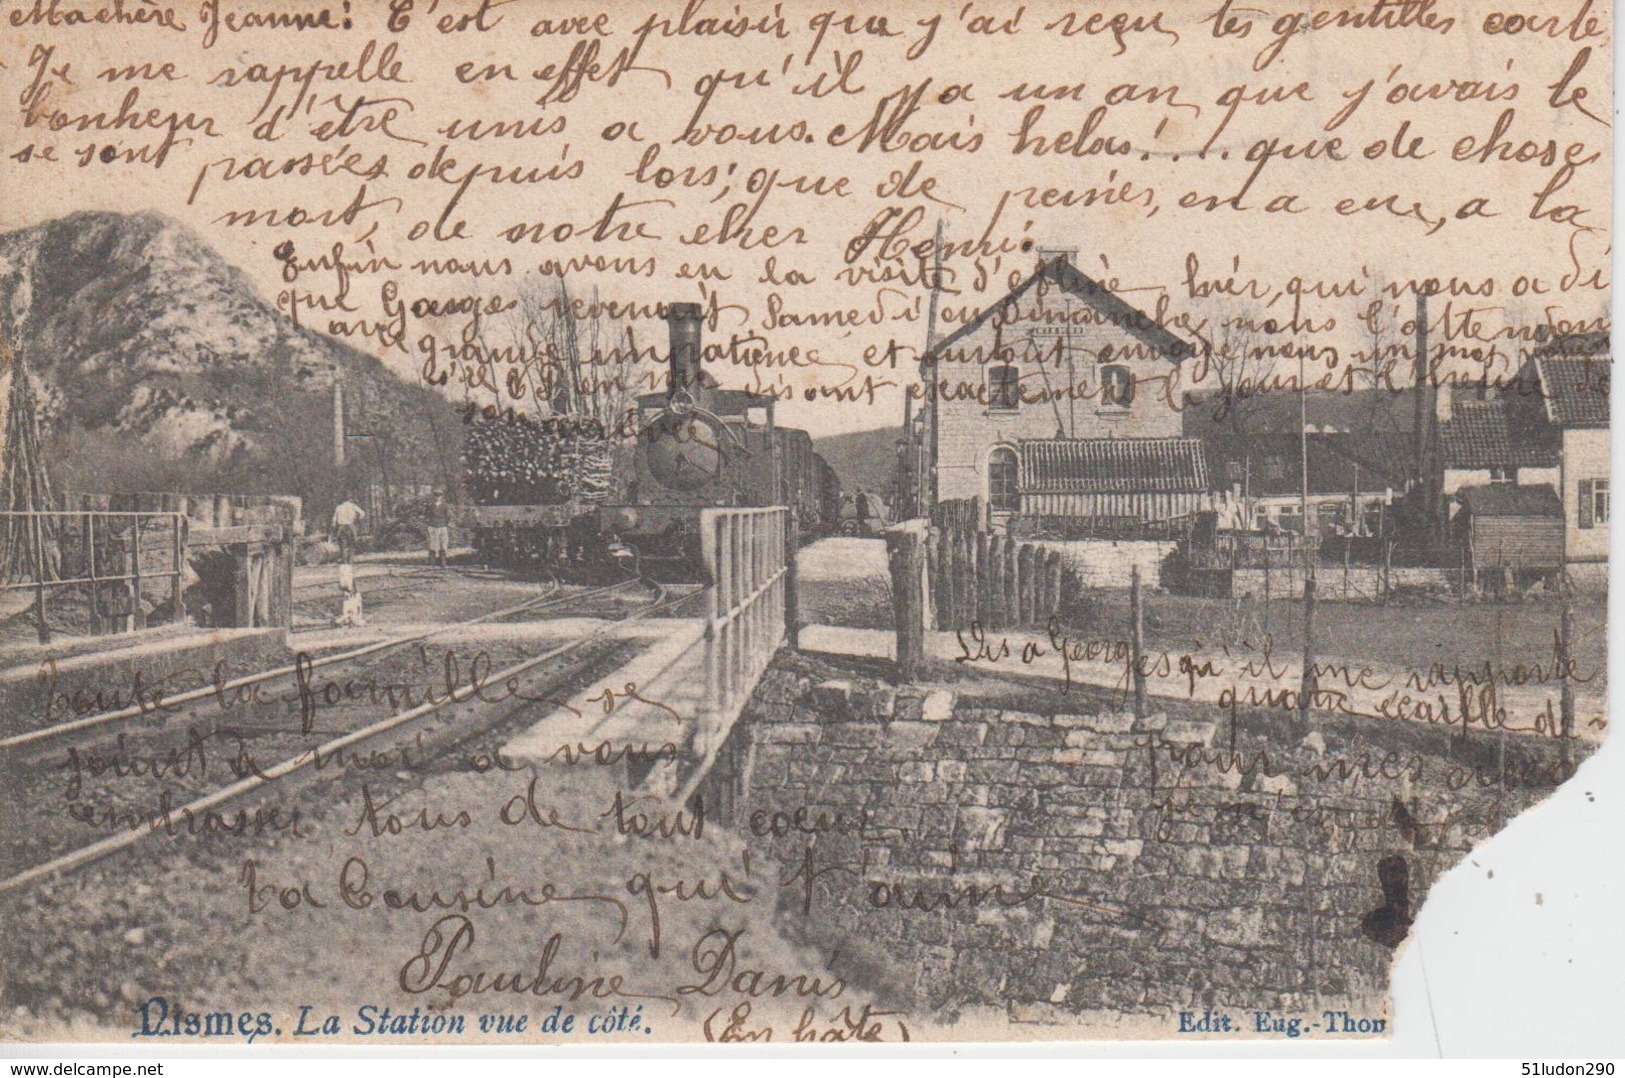 Machère Jeanne! C'est avec plaisir que j'ai reçu tes gentilles carte
Je me rappelle en effet qu'il ya un an que j'avais le
bonheur d'être unis a vous. Mais helas!.... que de choses
se sont passées depuis lors; que de peines, en a eue, a la
mort, de notre cher Henri.
Enfin nous avons eu la visite d' hier, qui nous a di
que Georges revenait Samedi ou Dimanche, nous l'attendon
avec grande impatience et surtout envoye nous un mot
disant exactement le jour et l'heure de
son arrivée
Dis a Georges qu'il me rapporte
quatre écaille de
pour mes
je n'en ai
toute la famille se
joint à moi a vous
embrasser tous de tout coeur.
Ta Cousine qui t'aime
Pauline Danis
(En hâte)
Nismes. La Station vue de côté.
Edit. Eug.-Thom
Machère Jeanne
51ludon290